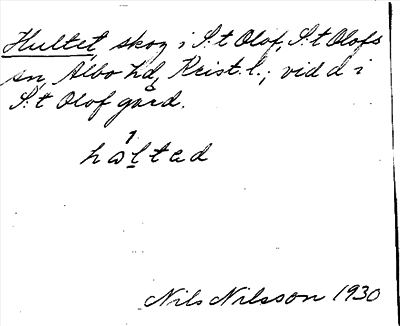 Hultet, skog i S:t Olof, S:t Olofs
sn, Albo hd, Krist. l.; vid d i
S:t Olof gård.
hɷltəd
Nils Nilsson 1930